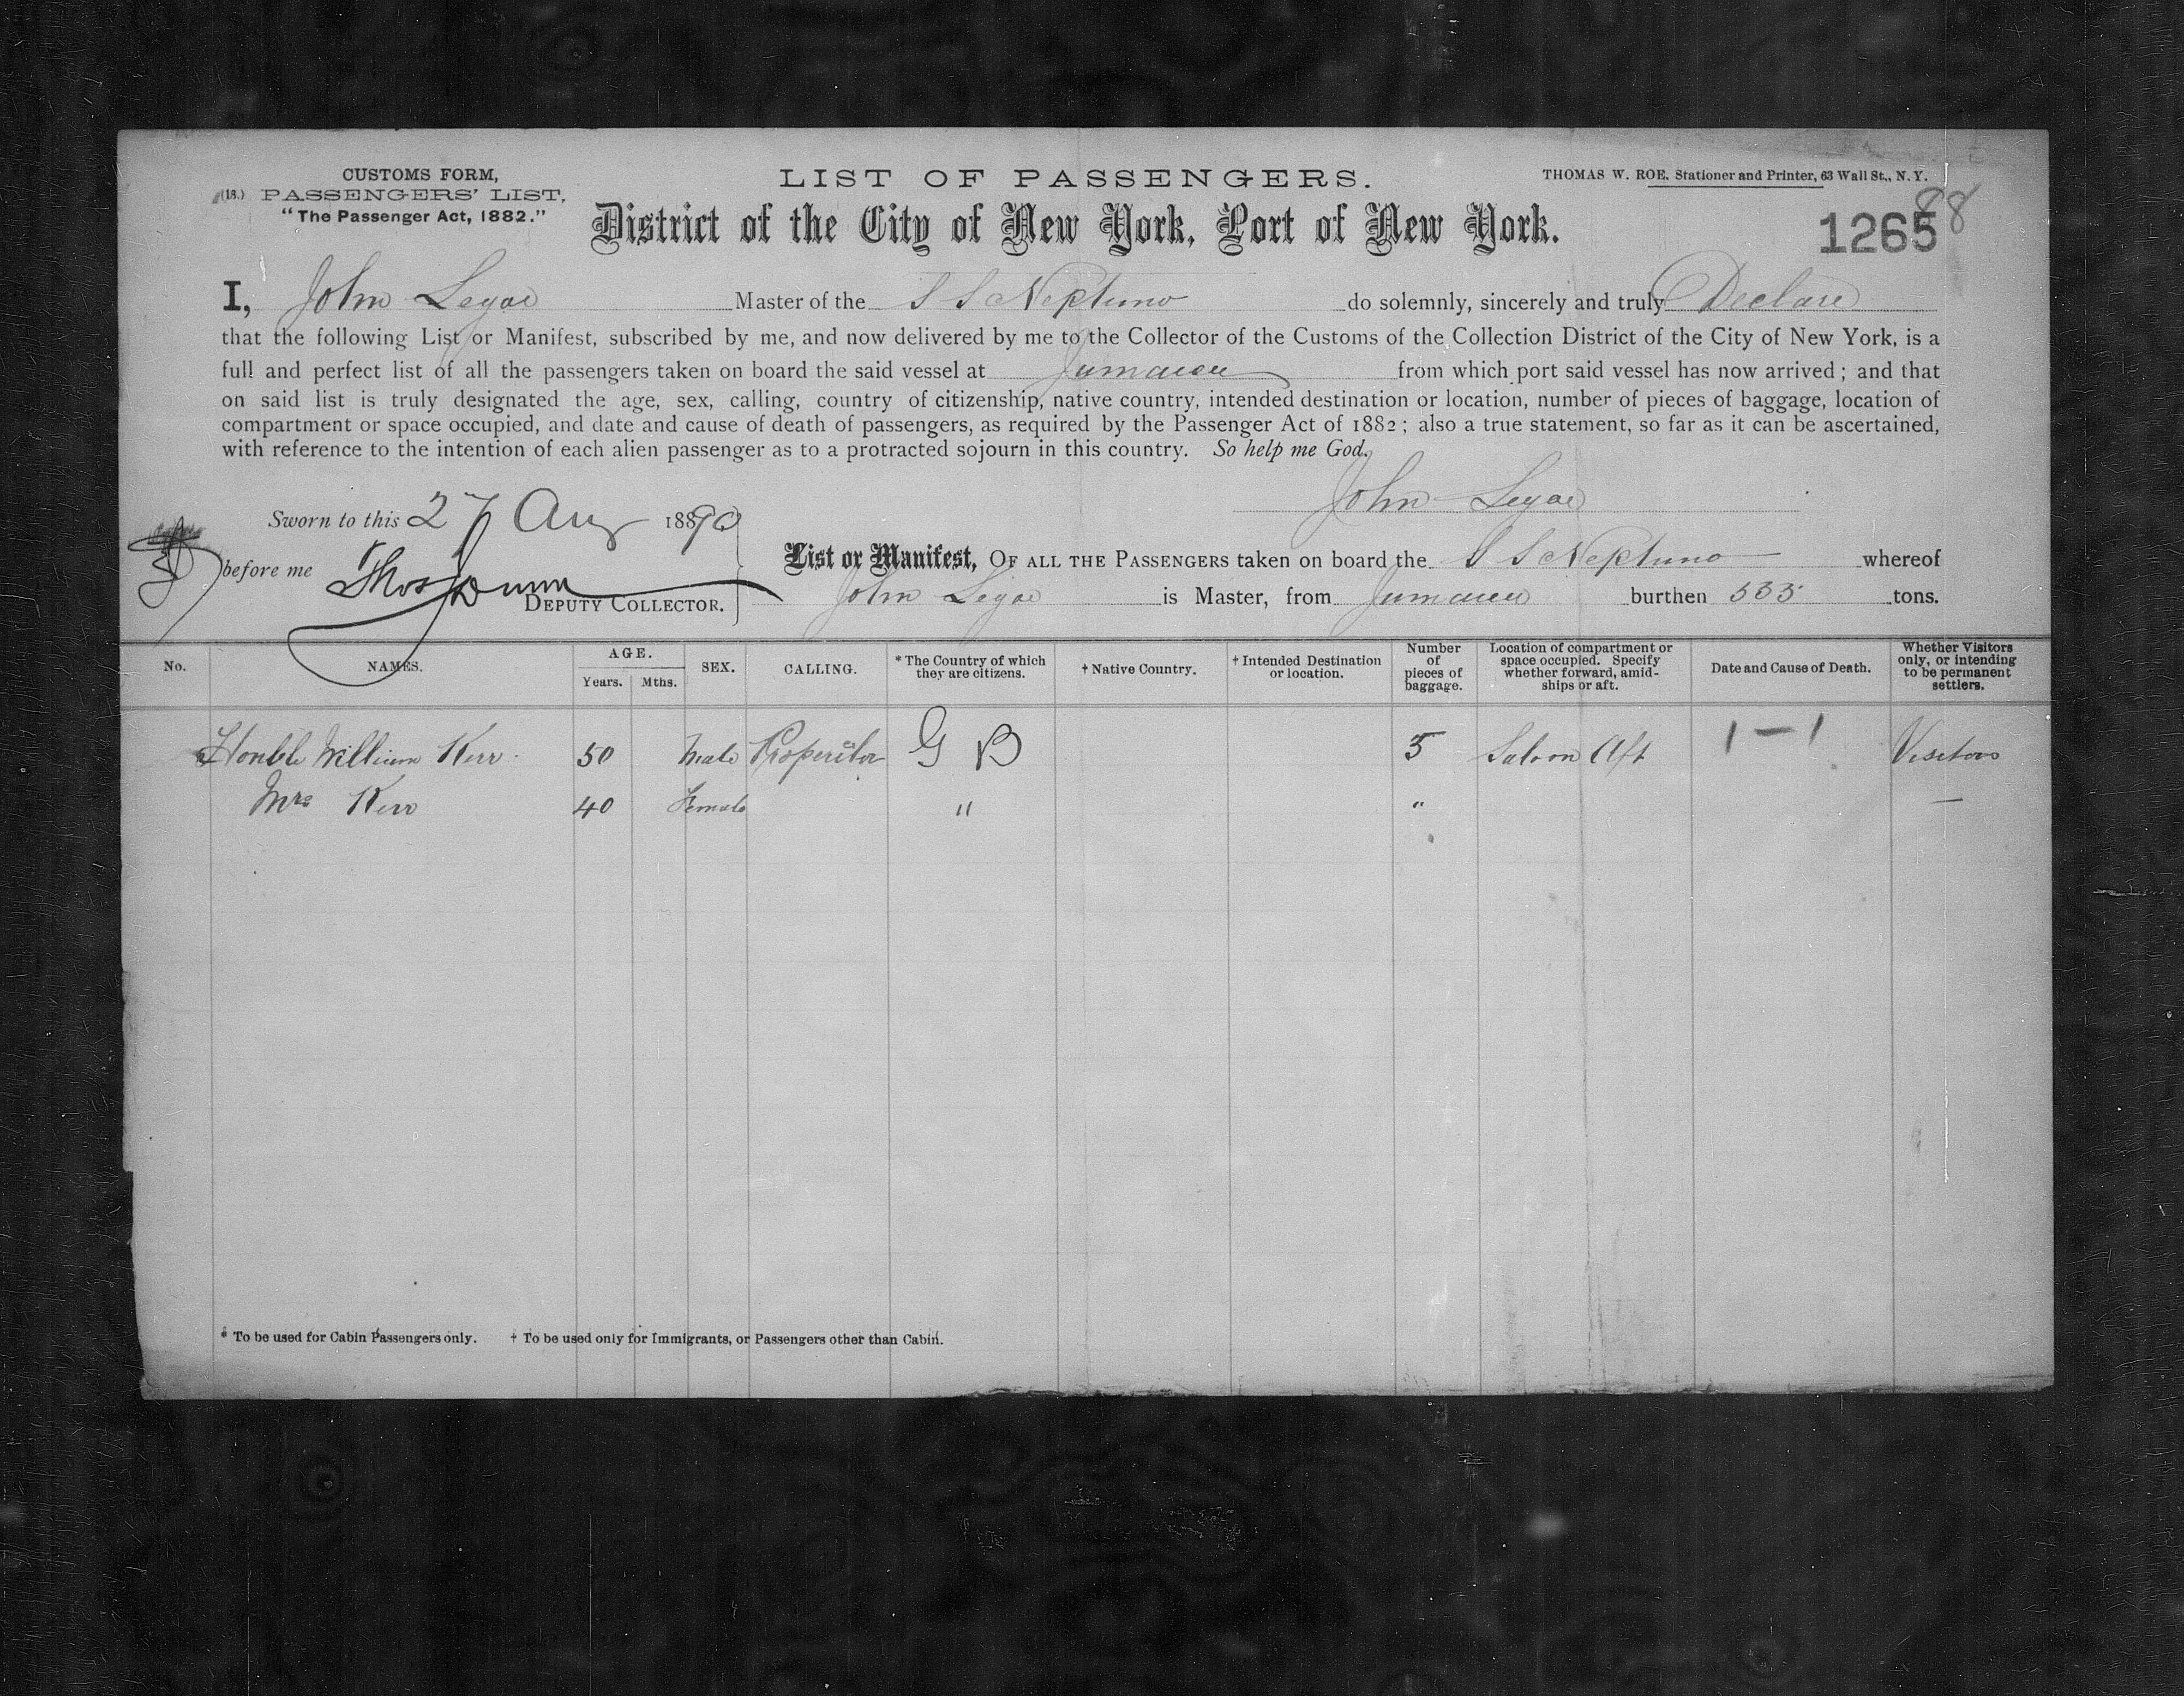 CUSTOMS FORM,
(18.) PASSENGERS' LIST,
"The Passenger Act, 1882."
LIST OF PASSENGERS.
District of the City of New York, Port of New York.
THOMAS W. ROE, Stationer and Printer, 63 Wall St., N.Y.
88
1265
I, John Legae Master of the S S Neptuno do solemnly, sincerely and truly Declare
that the following List or Manifest, subscribed by me, and now delivered by me to the Collector of the Customs of the Collection District of the City of New York, is a
full and perfect list of all the passengers taken on board the said vessel at Jamaica from which port said vessel has now arrived; and that
on said list is truly designated the age, sex, calling, country of citizenship, native country, intended destination or location, number of pieces of baggage, location of
compartment or space occupied, and date and cause of death of passengers, as required by the Passenger Act of 1882; also a true statement, so far as it can be ascertained,
with reference to the intention of each alien passenger as to a protracted sojourn in this country. So help me God.
John Legae
Sworn to this 27 Aug 1890
before me Thos Dunn
DEPUTY COLLECTOR.
List or Manifest, OF ALL THE PASSENGERS taken on board the S S Neptuno whereof
John Legae is Master, from Jamaica burthen 535 tons.
No. NAMES. AGE. Years. Mths. SEX. CALLING. * The Country of which they are citizens. † Native Country. † Intended Destination or location. Number of pieces of baggage. Location of compartment or space occupied. Specify whether forward, amidships or aft. Date and Cause of Death. Whether Visitors only, or intending to be permanent settlers.
Honble William Kerr 50 Male Properitor G B 5 Saloon Aft 1 — 1 Visitors
Mrs Kerr 40 Female " " —
* To be used for Cabin Passengers only. † To be used only for Immigrants, or Passengers other than Cabin.